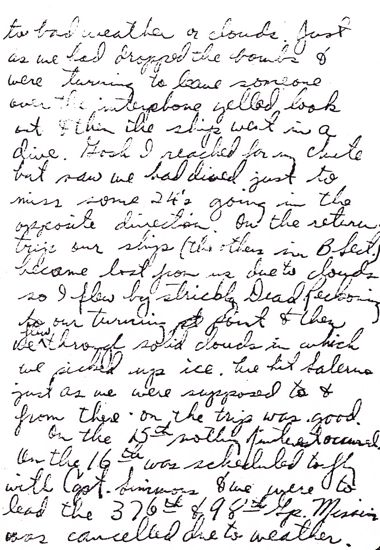 to bad weather or clouds. Just
as we had dropped the bombs &
were turning to leave someone
over the interphone yelled look
out & then the ship went in a
dive. Gosh I reached for my chute
but saw we had dived just to
miss some 24's going in the
opposite direction. On the return
trip our ships (the others in B Sect.)
became lost from us due to clouds
so I flew by strictly Dead Reckoning
to our turning pt point & then
flew through solid clouds in which
we picked up ice. We hit Salerno
just as we were supposed to &
from there on the trip was good.
On the 15th nothing further occurred.
On the 16th was scheduled to fly
with Capt. Simmons & we were to
lead the 376th & 98th Gp. Mission
was cancelled due to weather.